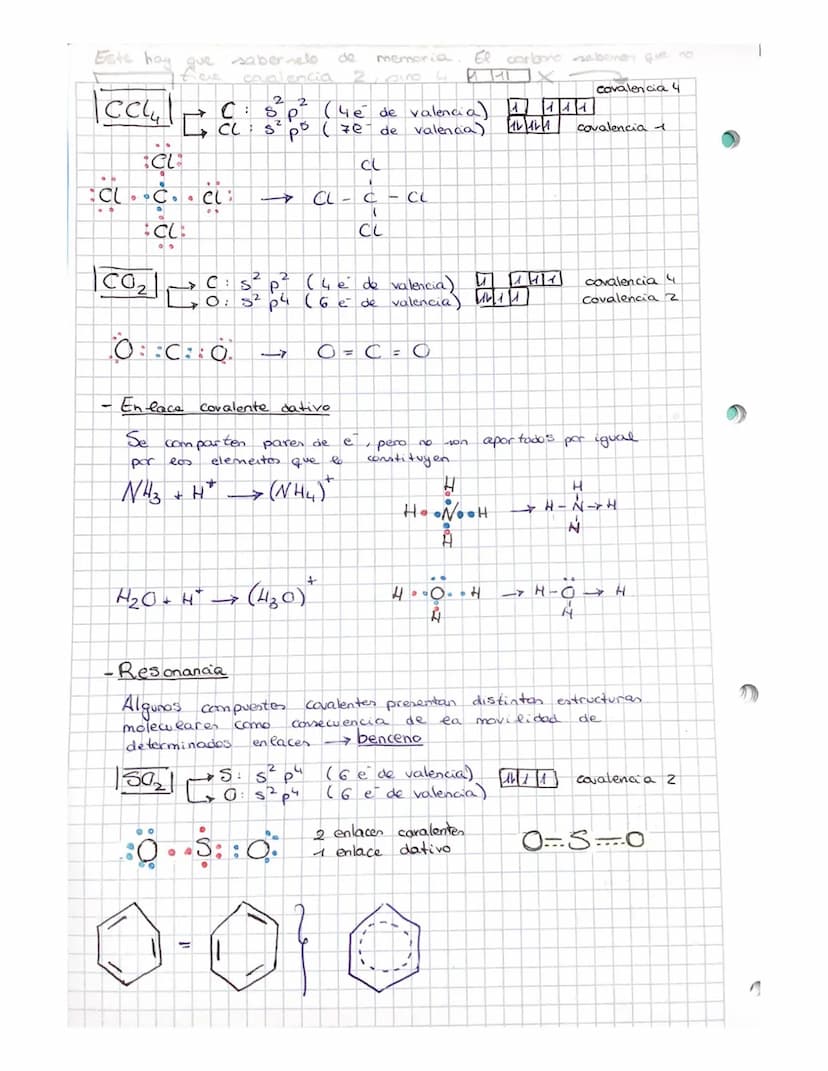 Este hay que sabernelo de memoria. El carbono sabemos que no
tiene covalencia 2, sino 4 1 1 X
covalencia 4
CCl₄ → C : s² p² (4e⁻ de valencia) 1 1 1 1
→ Cl : s² p⁵ (7e⁻ de valencia) 1L 1L 1 covalencia 1
:Cl: Cl
:Cl · · C · · Cl: → Cl - C - Cl
:Cl: Cl
CO₂ → C : s² p² (4 e⁻ de valencia) 1 1 1 1 covalencia 4
→ O : s² p⁴ (6 e⁻ de valencia) 1L 1 1 covalencia 2
O : : C : : O → O = C = O
- Enlace covalente dativo
Se comparten pares de e⁻, pero no son aportados por igual
por los elementos que lo constituyen
NH₃ + H⁺ → (NH₄)⁺
H H
H · · N · · H → H - N → H
H N
H₂O + H⁺ → (H₃O)⁺ H · · O · · H → H - O → H
H H
- Resonancia
Algunos compuestos covalentes presentan distintas estructuras
moleculares como consecuencia de la movilidad de
determinados enlaces → benceno
SO₂ → S : s² p⁴ (6 e⁻ de valencia) 1L 1 1 covalencia 2
→ O : s² p⁴ (6 e⁻ de valencia)
:O · · S : : O: 2 enlaces covalentes O=S=O
1 enlace dativo
= }